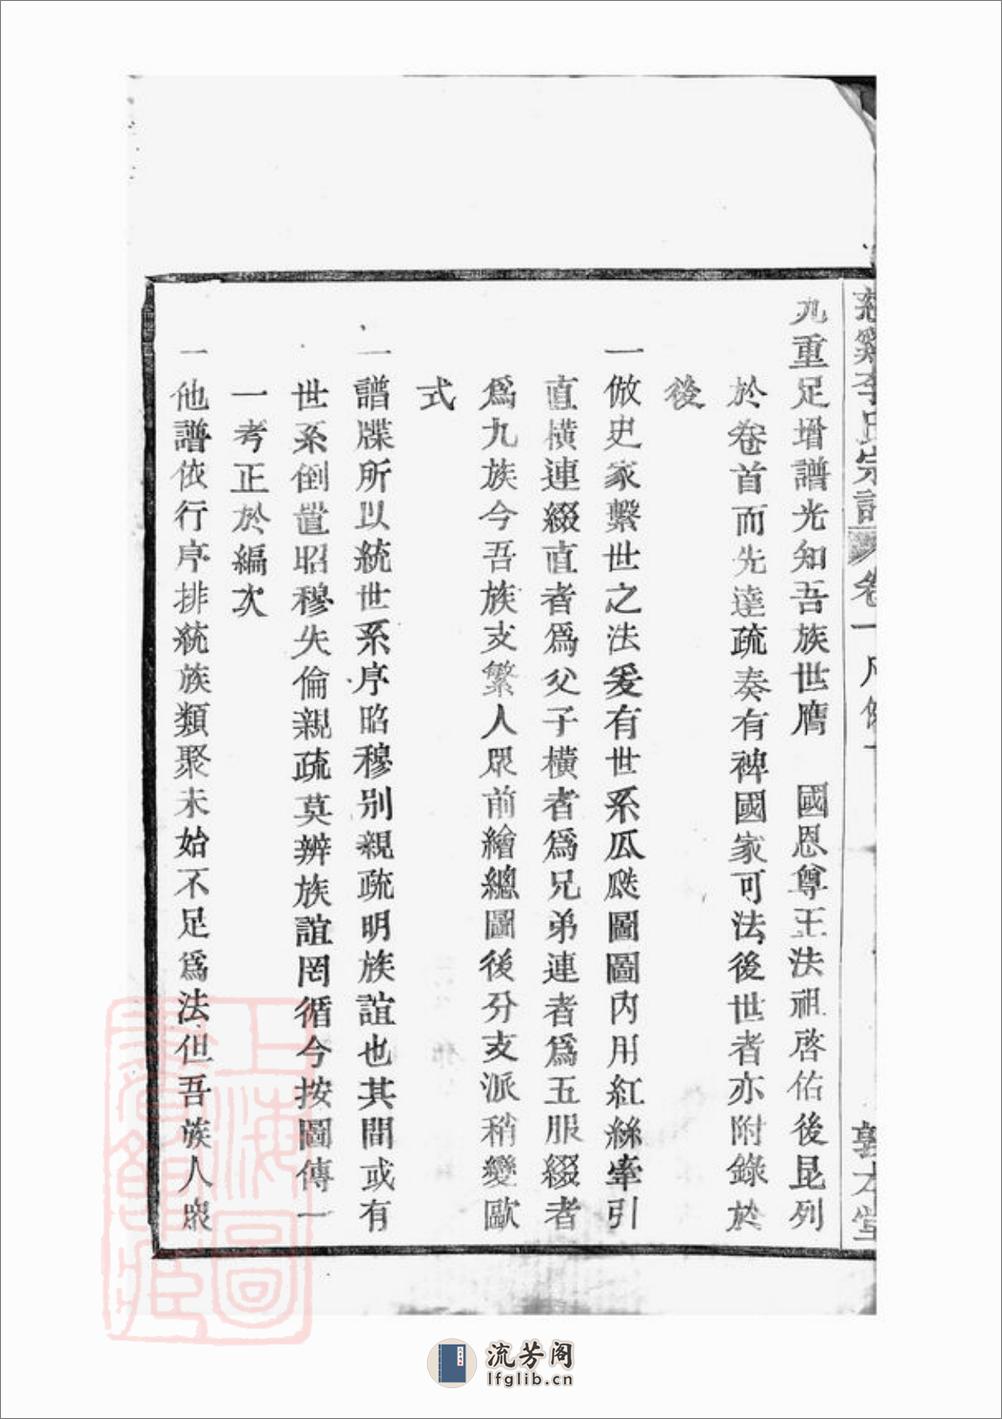 慈谿李氏宗譜 卷一凡例 敦本堂
九重足增譜光知吾族世膺 國恩尊王法祖啓佑後昆列
於卷首而先達疏奏有裨國家可法後世者亦附錄於
後
一倣史家繫世之法爰有世系瓜瓞圖圖內用紅絲牽引
直橫連綴直者爲父子橫者爲兄弟連者爲五服綴者
爲九族今吾族支繁人眾前繪總圖後分支派稍變歐
式
一譜牒所以統世系序昭穆別親疏明族誼也其間或有
世系倒置昭穆失倫親疏莫辨族誼罔循今按圖傳一
一考正於編次
一他譜依行序排統族類聚未始不足爲法但吾族人眾
上海圖書館藏
流芳阁
lfglib.cn